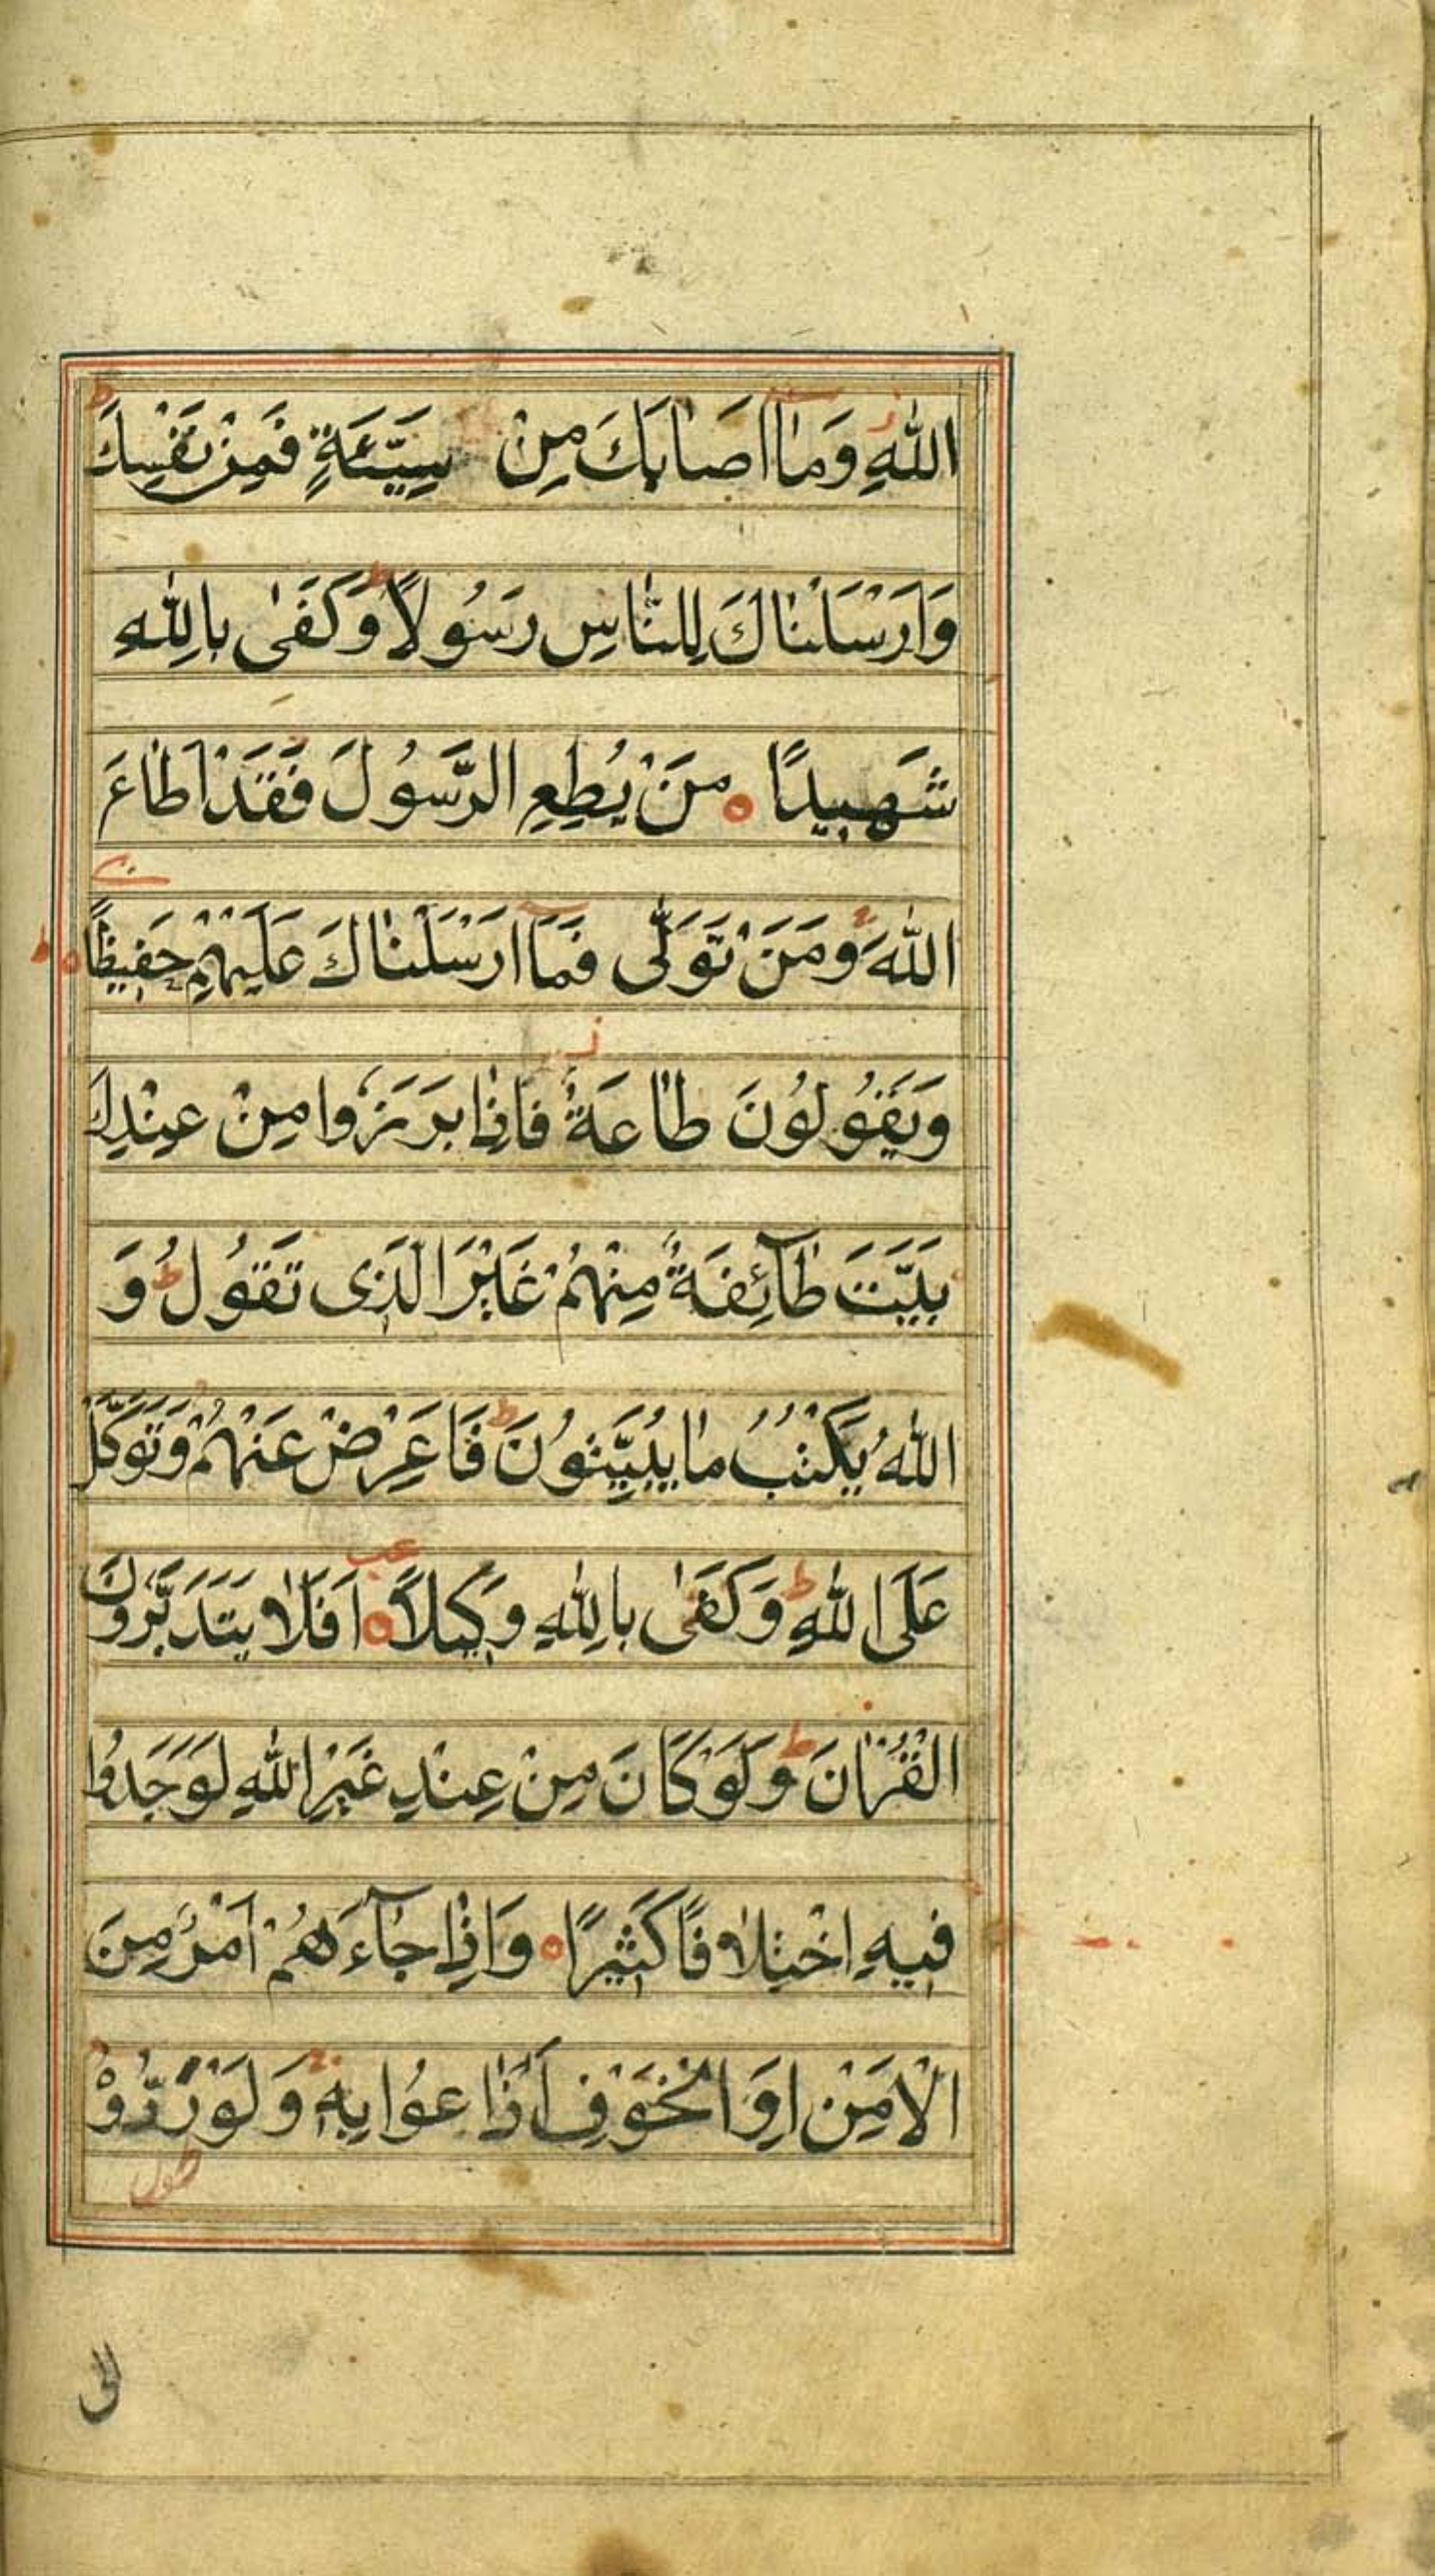 اللهِ وَمَا اَصَابَكَ مِنْ سَيِّئَةٍ فَمِنْ نَفْسِكَ ط
وَاَرْسَلْنَاكَ لِلنَّاسِ رَسُولًا ط وَكَفٰى بِاللهِ
شَهِيدًا ه مَنْ يُطِعِ الرَّسُولَ فَقَدْ اَطَاعَ
اللهَ وَمَنْ تَوَلّٰى فَمَا اَرْسَلْنَاكَ عَلَيْهِمْ حَفِيظًا ه ط
وَيَقُولُونَ طَاعَةٌ فَاِذَا بَرَزُوا مِنْ عِنْدِكَ
بَيَّتَ طَآئِفَةٌ مِنْهُمْ غَيْرَ الَّذِى تَقُولُ ط وَ
اللهُ يَكْتُبُ مَا يُبَيِّتُونَ ط فَاَعْرِضْ عَنْهُمْ وَتَوَكَّلْ
عَلَى اللهِ ط وَكَفٰى بِاللهِ وَكِيلًا ه عب اَفَلَا يَتَدَبَّرُونَ
الْقُرْاٰنَ ط وَلَوْ كَانَ مِنْ عِنْدِ غَيْرِ اللهِ لَوَجَدُوا
فِيهِ اخْتِلَافًا كَثِيرًا ه وَاِذَا جَآءَهُمْ اَمْرٌ مِنَ
الْاَمْنِ اَوِ الْخَوْفِ اَذَاعُوا بِهِ وَلَوْ رَدُّوْهُ
الى